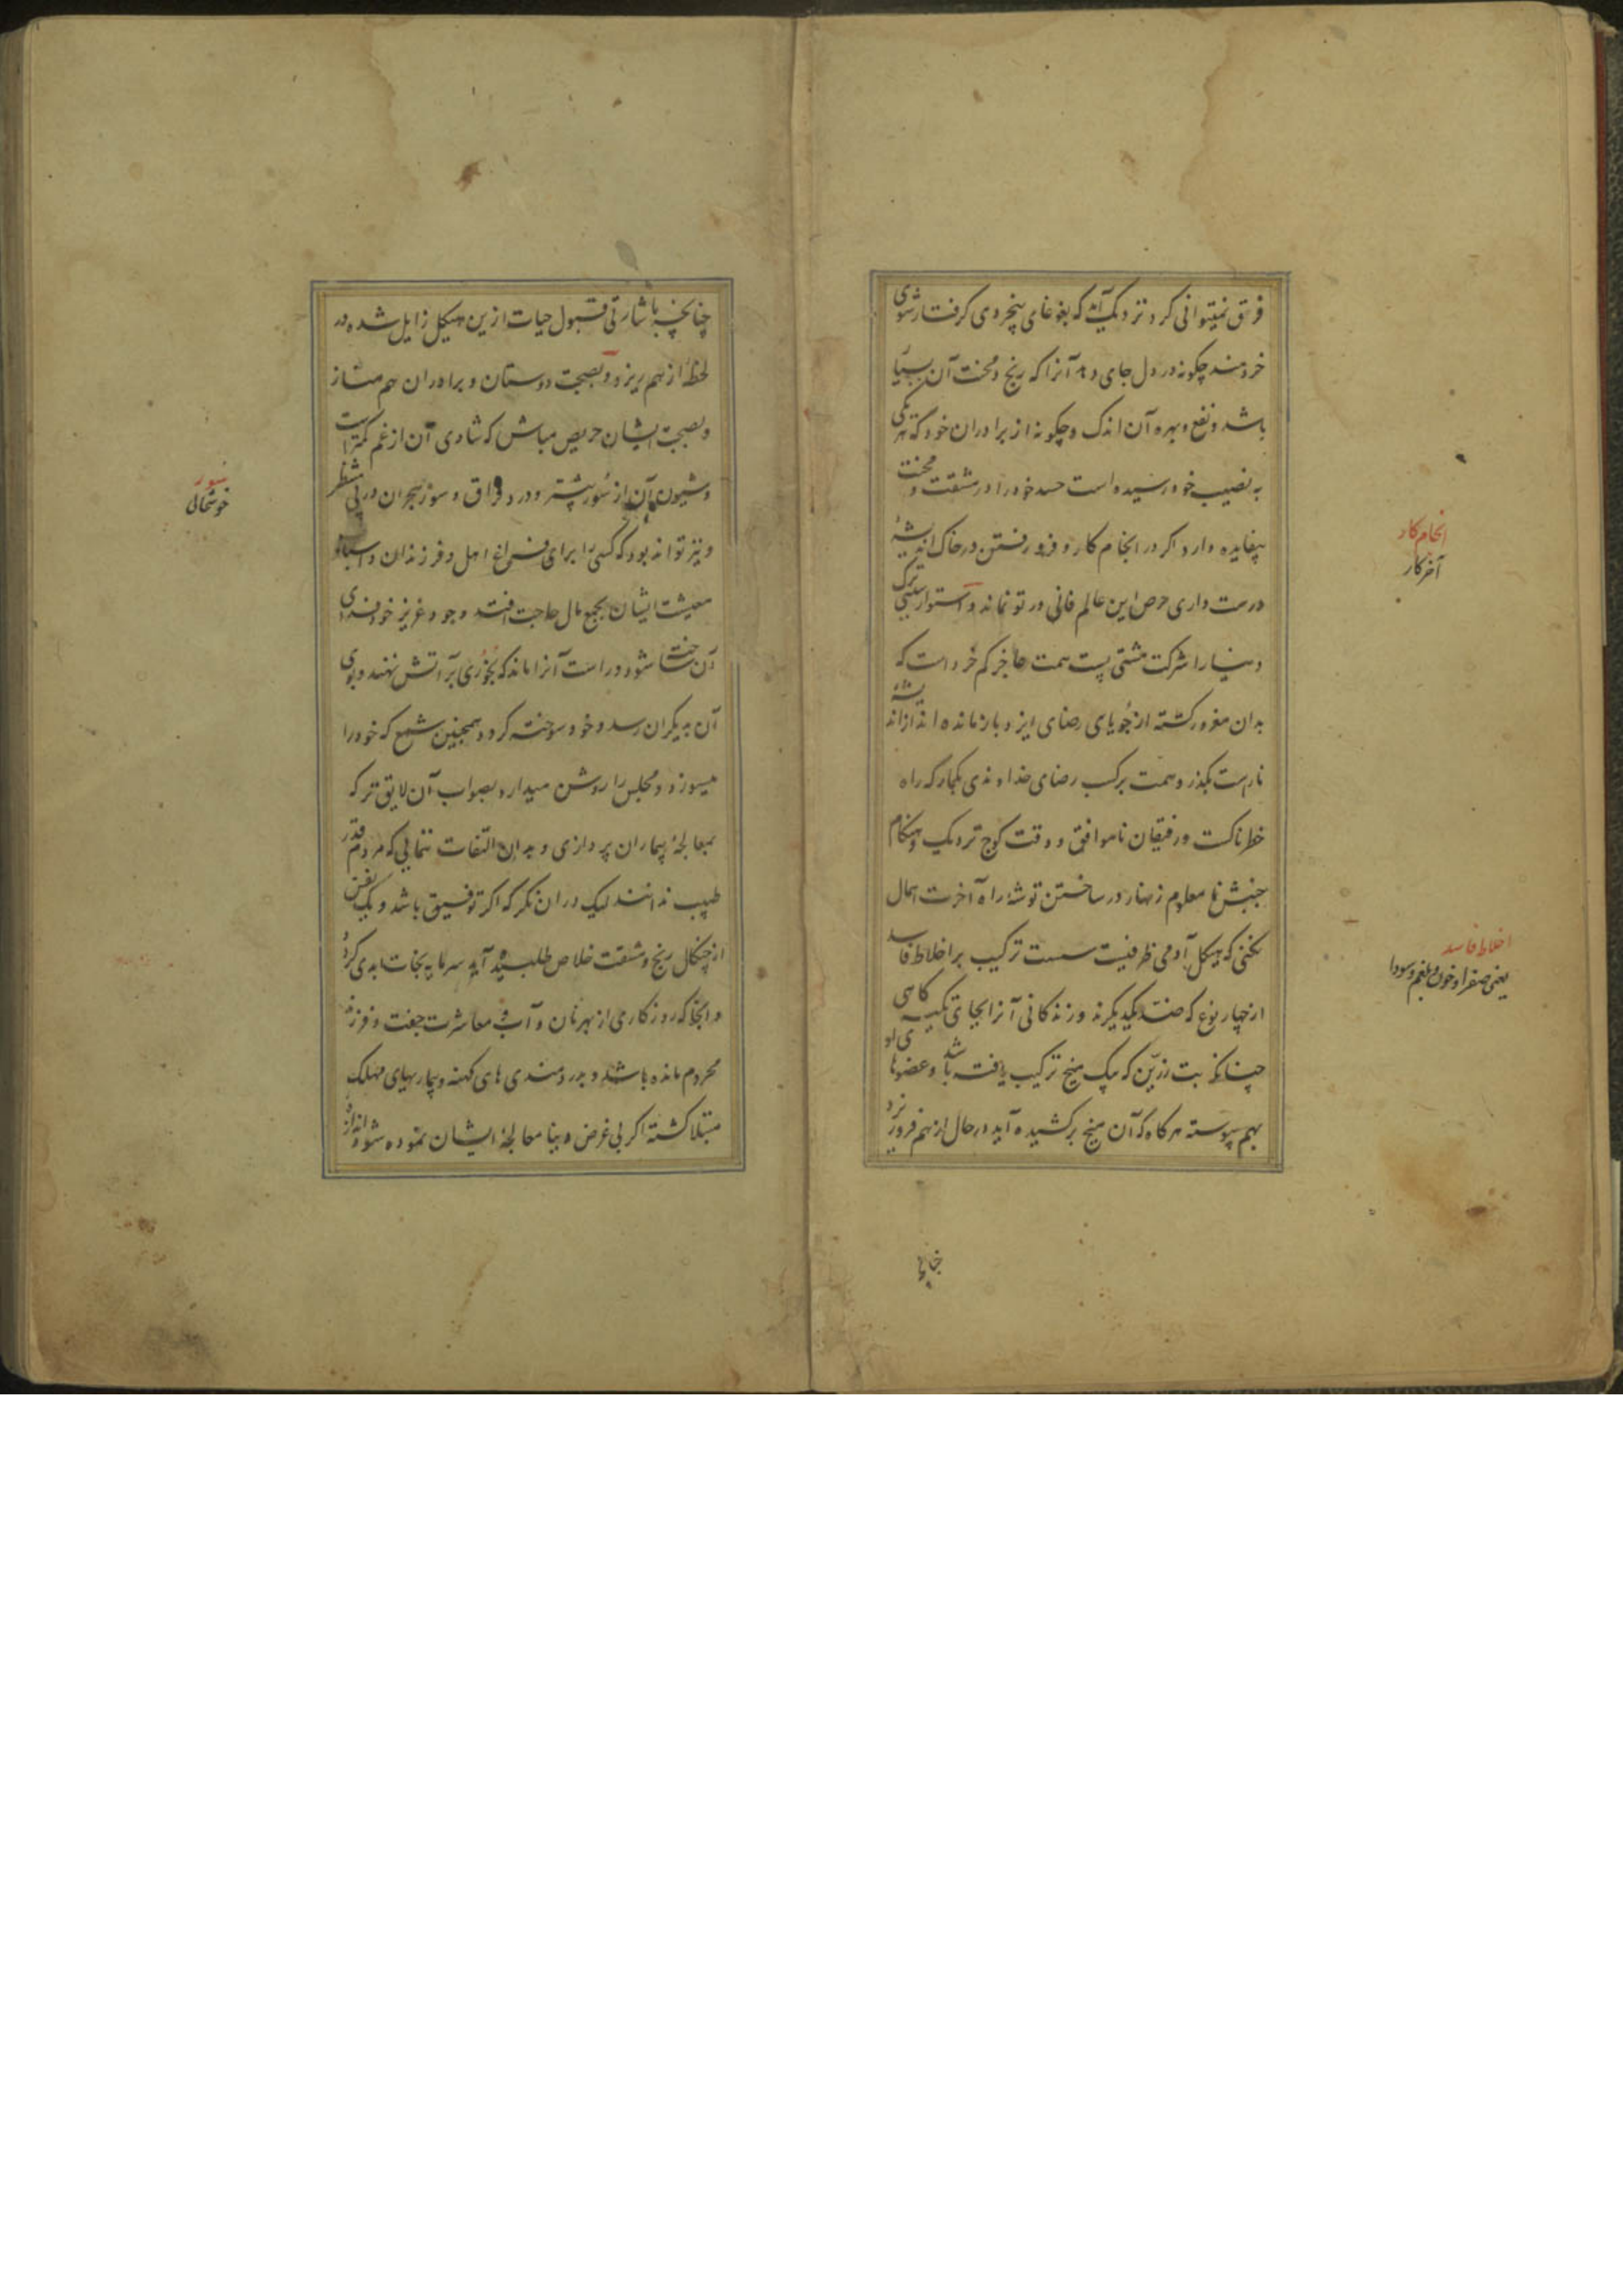 فرق نمیتوانی کرد نزدیک آمد که بغوغای بیخردی گرفتار شوی
خردمند چگونه در دل جای دهد آنرا که رنج و محنت آن بسیار
باشد و نفع و بهره آن اندک و چگونه از برادران خود که هر یکی
به نصیب خود رسیده است حسد خود را در مشقت و محنت
بیفایده دارد اگر در انجام کار و فرو رفتن در خاک اندیشهٔ
درست داری حرص این عالم فانی در تو نماند و استوارترین سببی ترک
دنیا را شرکت مشتی پست همت عاجز کم خرد است که
بدان مغرور گشته از جویای رضای ایزد باز مانده اند از اندیشهٔ
نادرست بگذر و همت بر کسب رضای خداوندی بگمار که راه
خطرناکست و رفیقان ناموافق و وقت کوچ نزدیک و هنگام
جنبش نا معلوم زنهار در ساختن توشه راه آخرت اهمال
نکنی که هیکل آدمی ظرفیست سست ترکیب بر اخلاط فاسد
از چهار نوع که ضد یکدیگرند و زندگانی آنرا بجای تکیه گاهی
چنانکه بت زرین که بیک میخ ترکیب یافته باشد و عضوهای او
بهم پیوسته هر گاه که آن میخ برکشیده آید در حال از هم فرو ریزد
انجام کار
آخر کار
اخلاط فاسد
یعنی صفرا و خون و بلغم و سودا
چنانچه با شارتی قبول حیات ازین هیکل زایل شده در
لحظهٔ از هم ریزد و بصحبت دوستان و برادران هم مناز
و بصحبت ایشان حریص مباش که شادی آن از غم کمتر است
و شیون آن از سور بیشتر و درد فراق و سوز هجران در پی منتظر
و نیز تواند بود که کسی را برای فراغ اهل و فرزندان و اسباب
معیشت ایشان بجمع مال حاجت افتد و وجود عزیز خود فدای
آن ساخته شود و راست آنرا ماند که بخوری بر آتش نهند و بوی
آن بدیگران رسد و خود سوخته گردد و همچنین شمع که خود را
میسوزد و مجلس را روشن میدارد بصواب آن لایق تر که
بمعالجهٔ بیماران پردازی و بدان التفات ننمایی که مردم قدر
طبیب ندانند لیک در آن نگر که اگر توفیق باشد و یک نفس
از چنگال رنج و مشقت خلاص طلبیده آید سرمایه نجات ابدی گردد
و آنجا که روزگاری از بهر نان و آب و معاشرت جفت و فرزند
محروم مانده باشد و بدردمندی های کهنه و بیماریهای مهلک
مبتلا گشته اگر بی غرض دنیا معالجهٔ ایشان نموده شود اندازهٔ
سور
خوشحالی